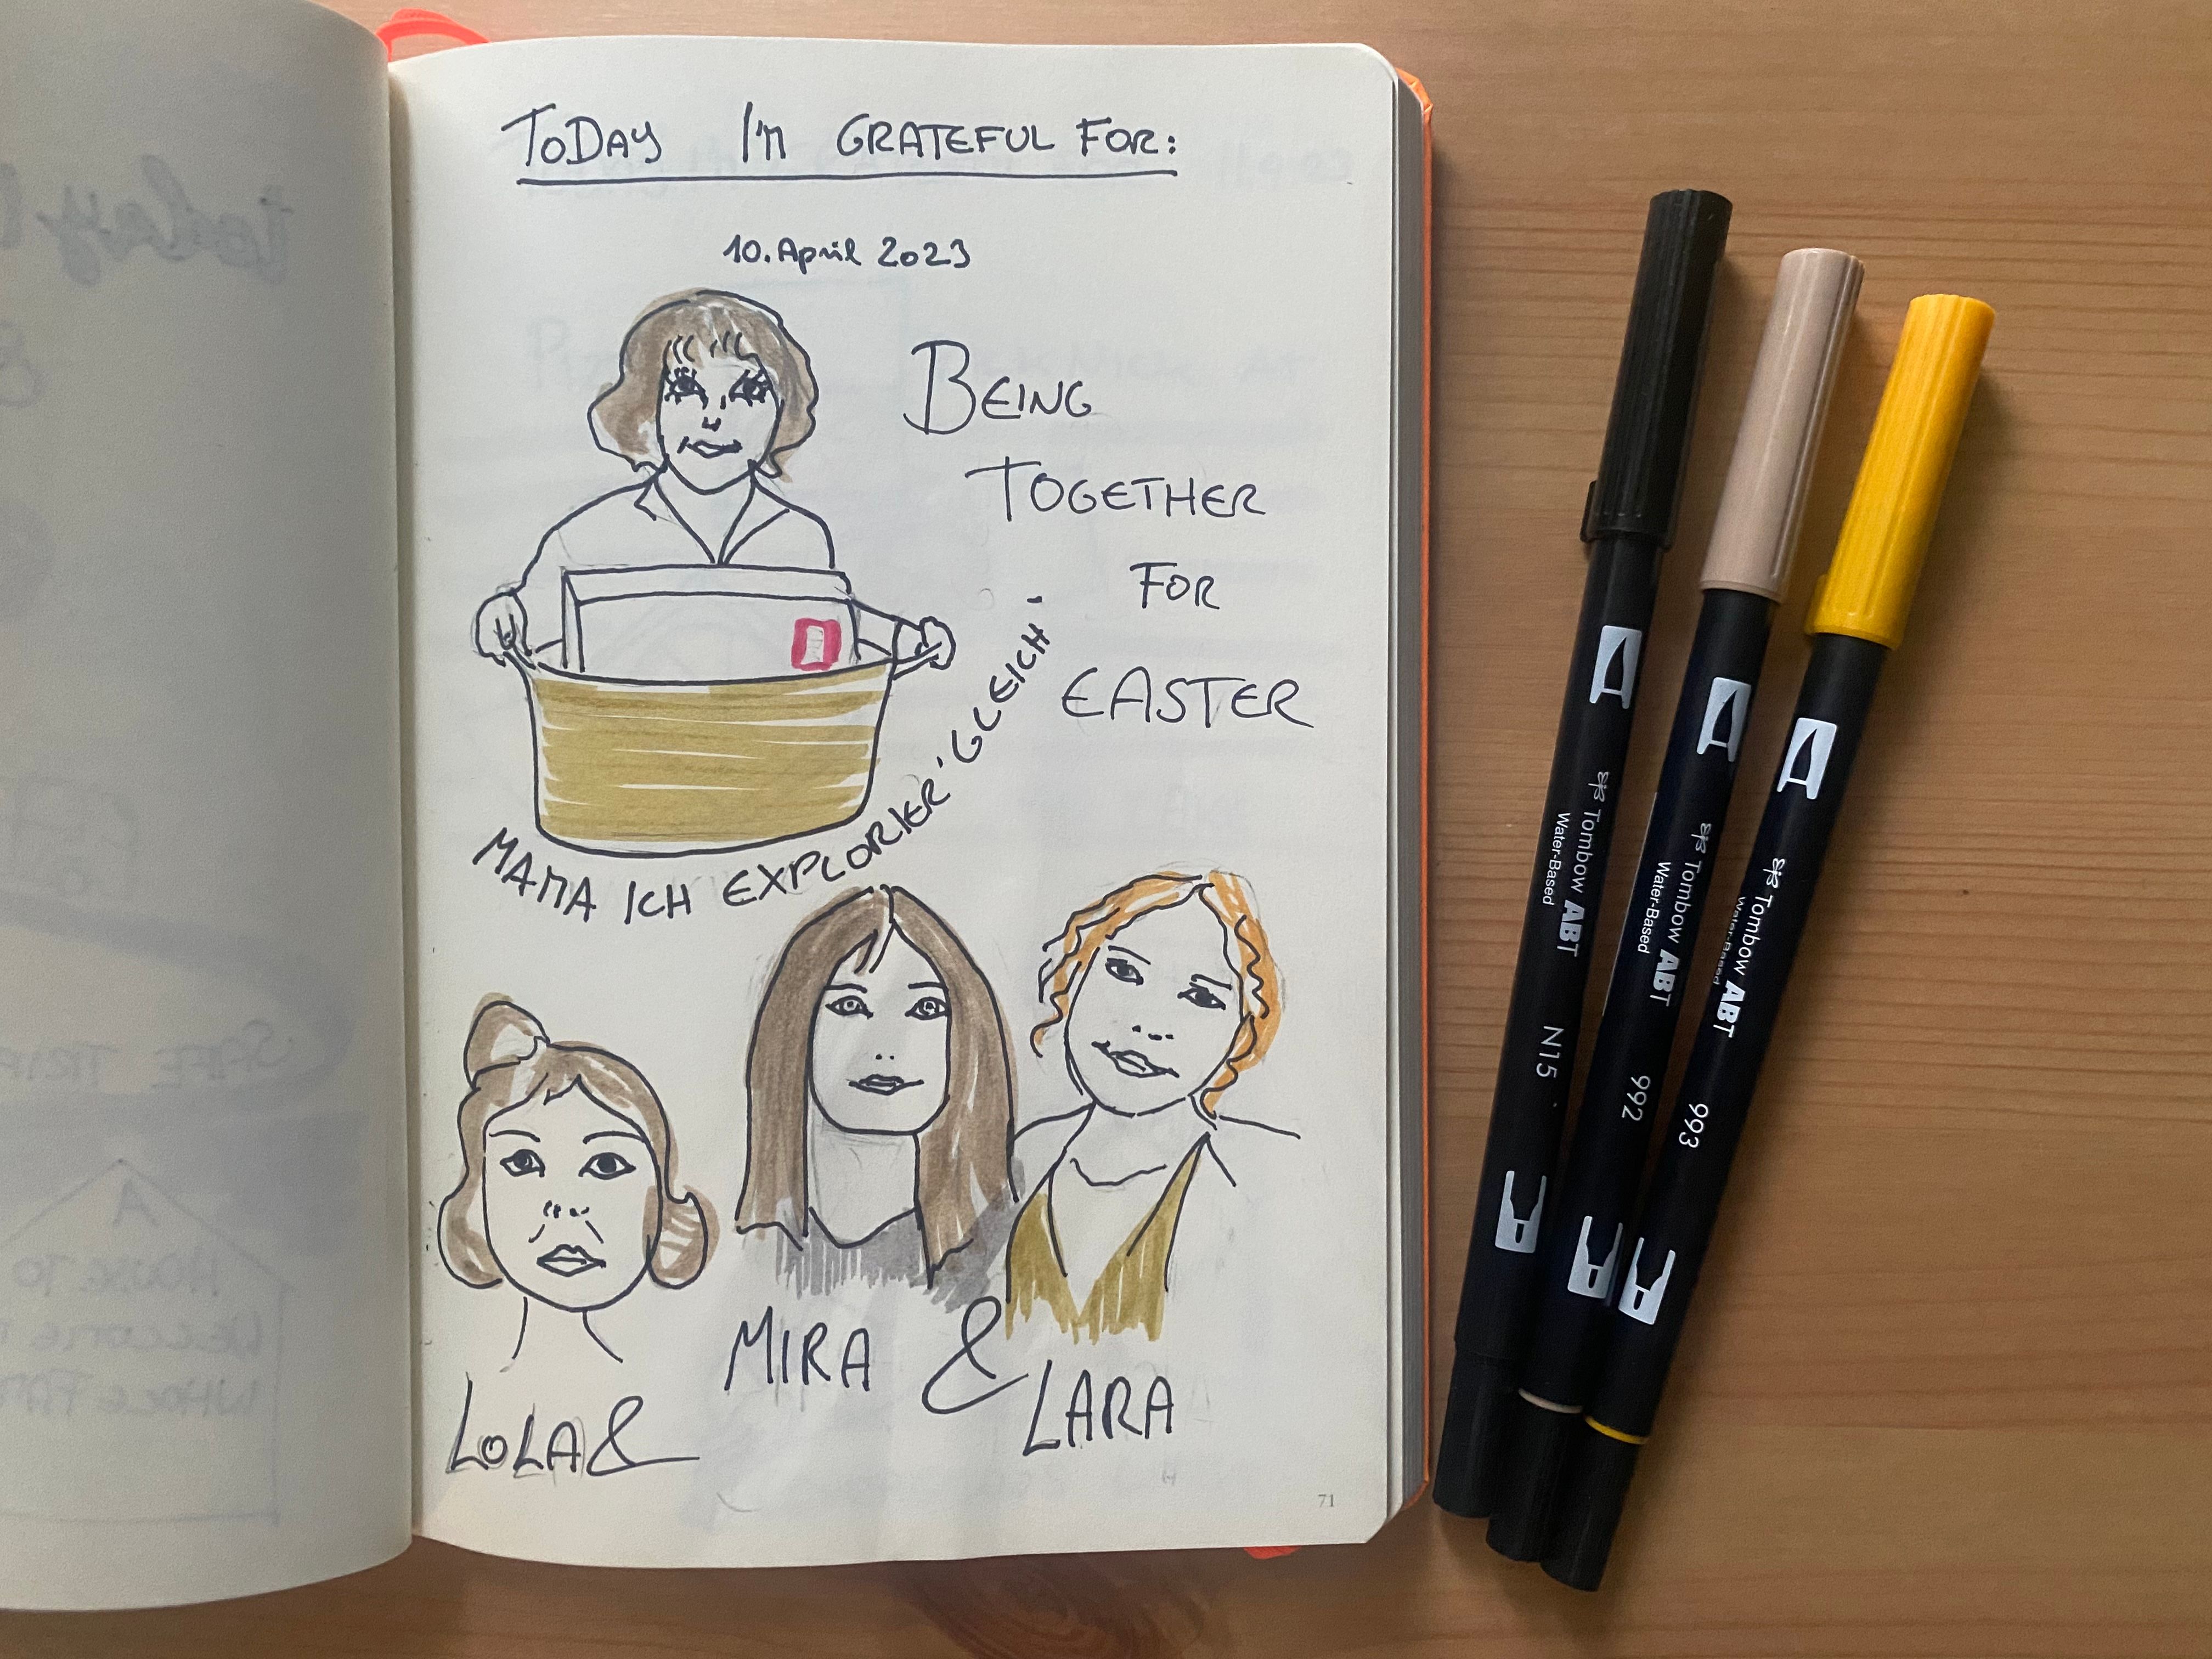 TODAY I'M GRATEFUL FOR:
10. April 2023
BEING
TOGETHER
FOR
EASTER
MAMA ICH EXPLORIER' GLEICH
LOLA &
MIRA &
LARA
71
Tombow ABT
Water-Based
N15
Tombow ABT
Water-Based
992
Tombow ABT
Water-Based
993
today
SAFE TRIP
A
HOUSE TO
WELCOME
WHOLE